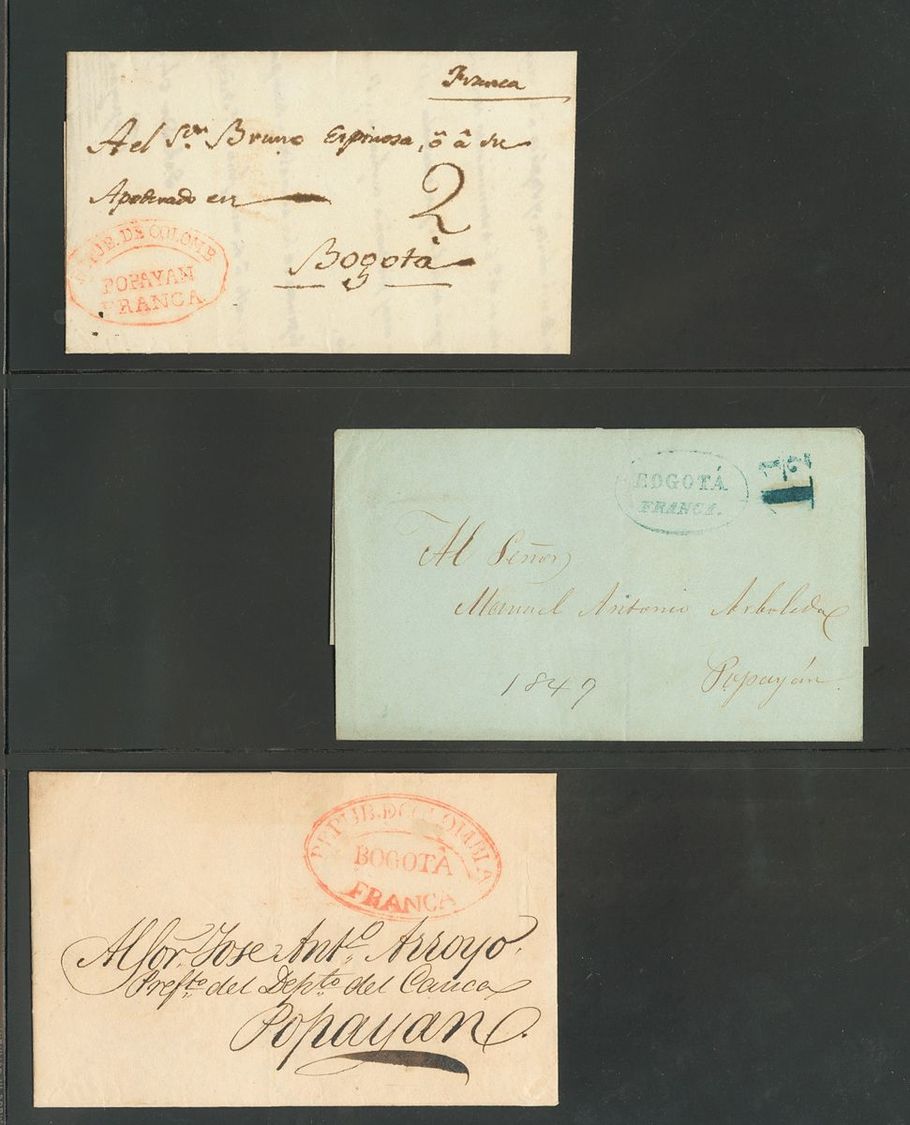 Franca
A el Sor. Bruno Espinosa, ō â su
Apoderado en
2
Bogotá
REPUB. DE COLOMB
POPAYAN
FRANCA
BOGOTÁ
FRANCA.
Al Señor
Manuel Antonio Arboleda
Popayán.
1849
REPUB. DE COLOMBIA
BOGOTÁ
FRANCA
Al Sor. Jose Anto. Arroyo.
Prefto. del Depto. del Cauca
Popayan.